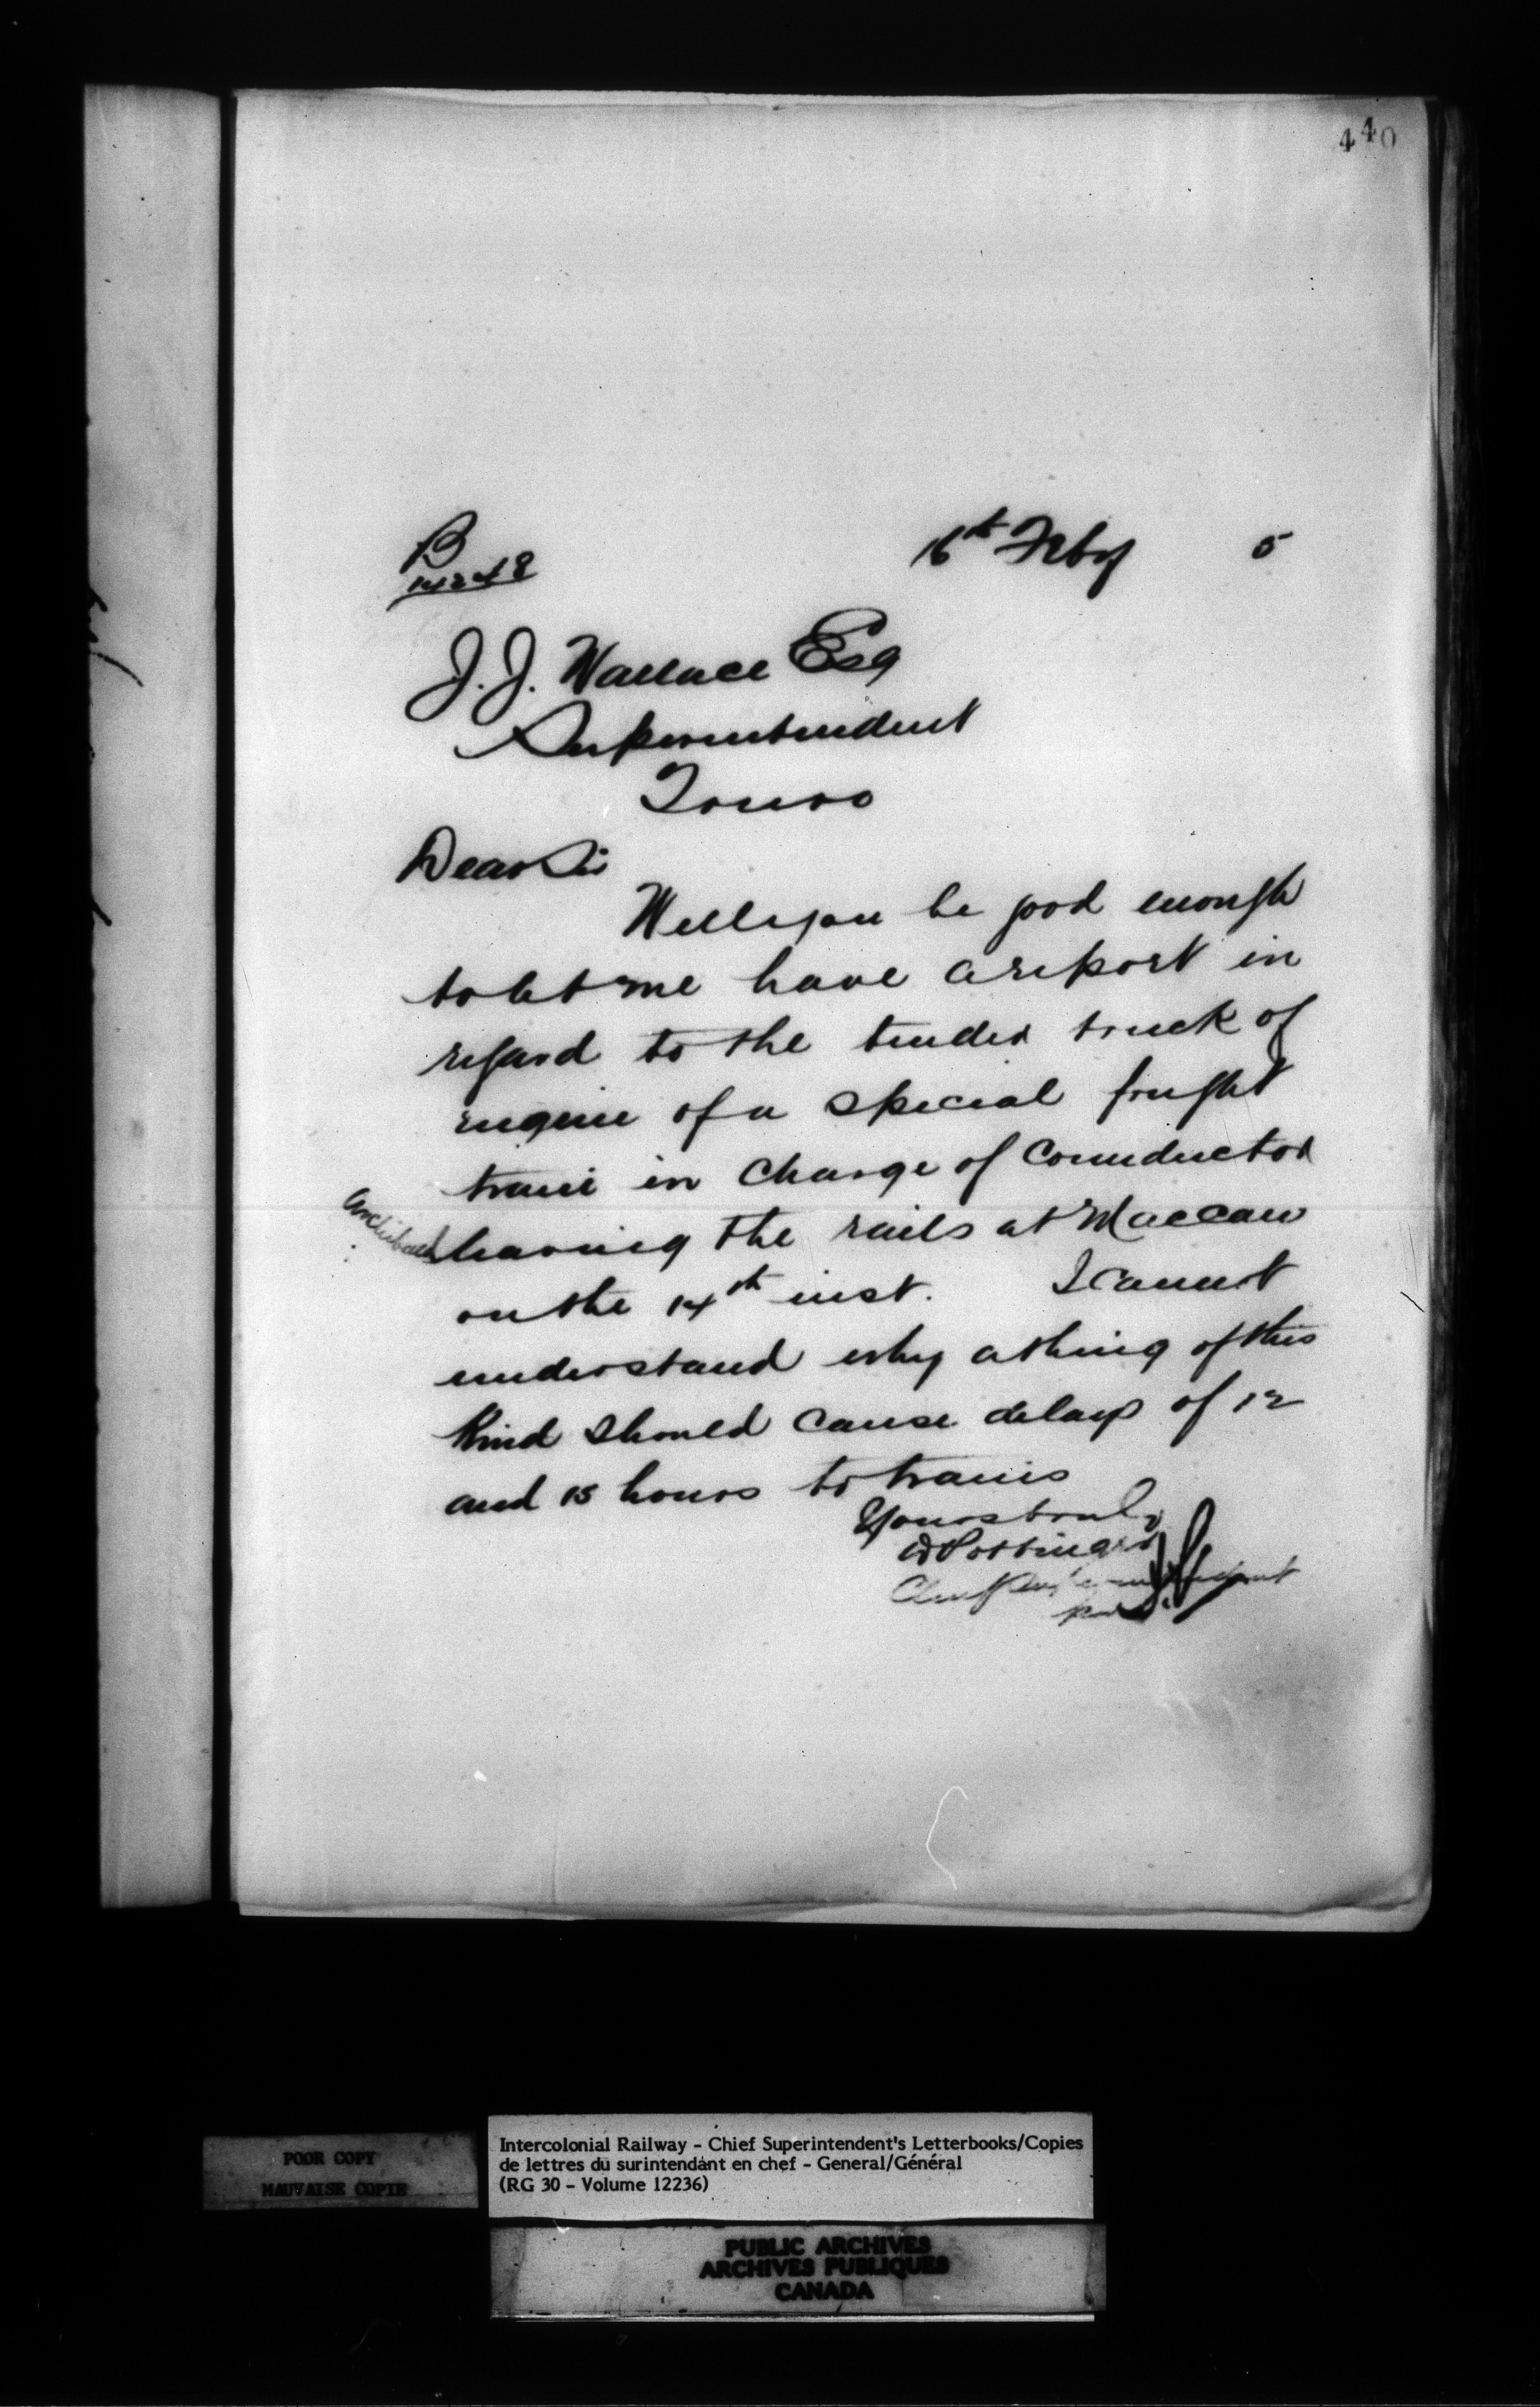 440
B
14248
16th Feby 5
J. J. Wallace Esq
Superintendent
Truro
Dear Sir
Will you be good enough
to let me have a report in
regard to the tender truck of
engine of a special freight
train in charge of Conductor
Archibald leaving the rails at Maccan
on the 14th inst. I cannot
understand why a thing of this
kind should cause delays of 12
and 15 hours to trains
Yours truly
D Pottinger
Chief Superintendent
per
POOR COPY
MAUVAISE COPIE
Intercolonial Railway - Chief Superintendent's Letterbooks/Copies
de lettres du surintendant en chef - General/Général
(RG 30 - Volume 12236)
PUBLIC ARCHIVES
ARCHIVES PUBLIQUES
CANADA